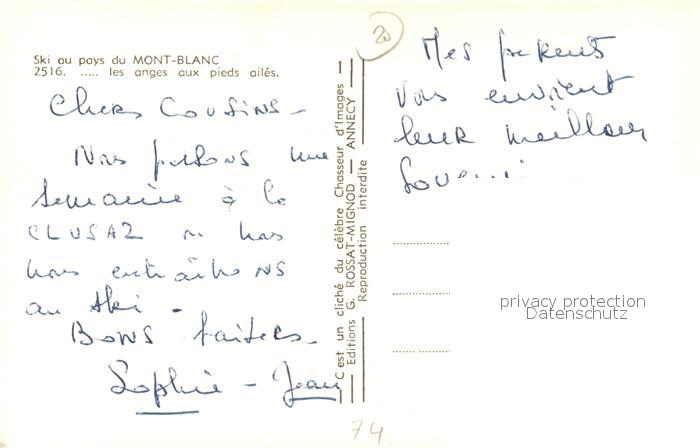 Ski au pays du MONT-BLANC
2516. ..... les anges aux pieds ailés.
Chers Cousins -
Nous passons une
semaine à la
CLUSAZ où nous
nous entraînons
au ski -
Bons baisers -
Sophie - Jean
C'est un cliché du célèbre Chasseur d'Images —
Editions G. ROSSAT-MIGNOD — ANNECY —
Reproduction interdite
20
Mes parents
vous envoient
leur meilleur
Souvenir
privacy protection
Datenschutz
74